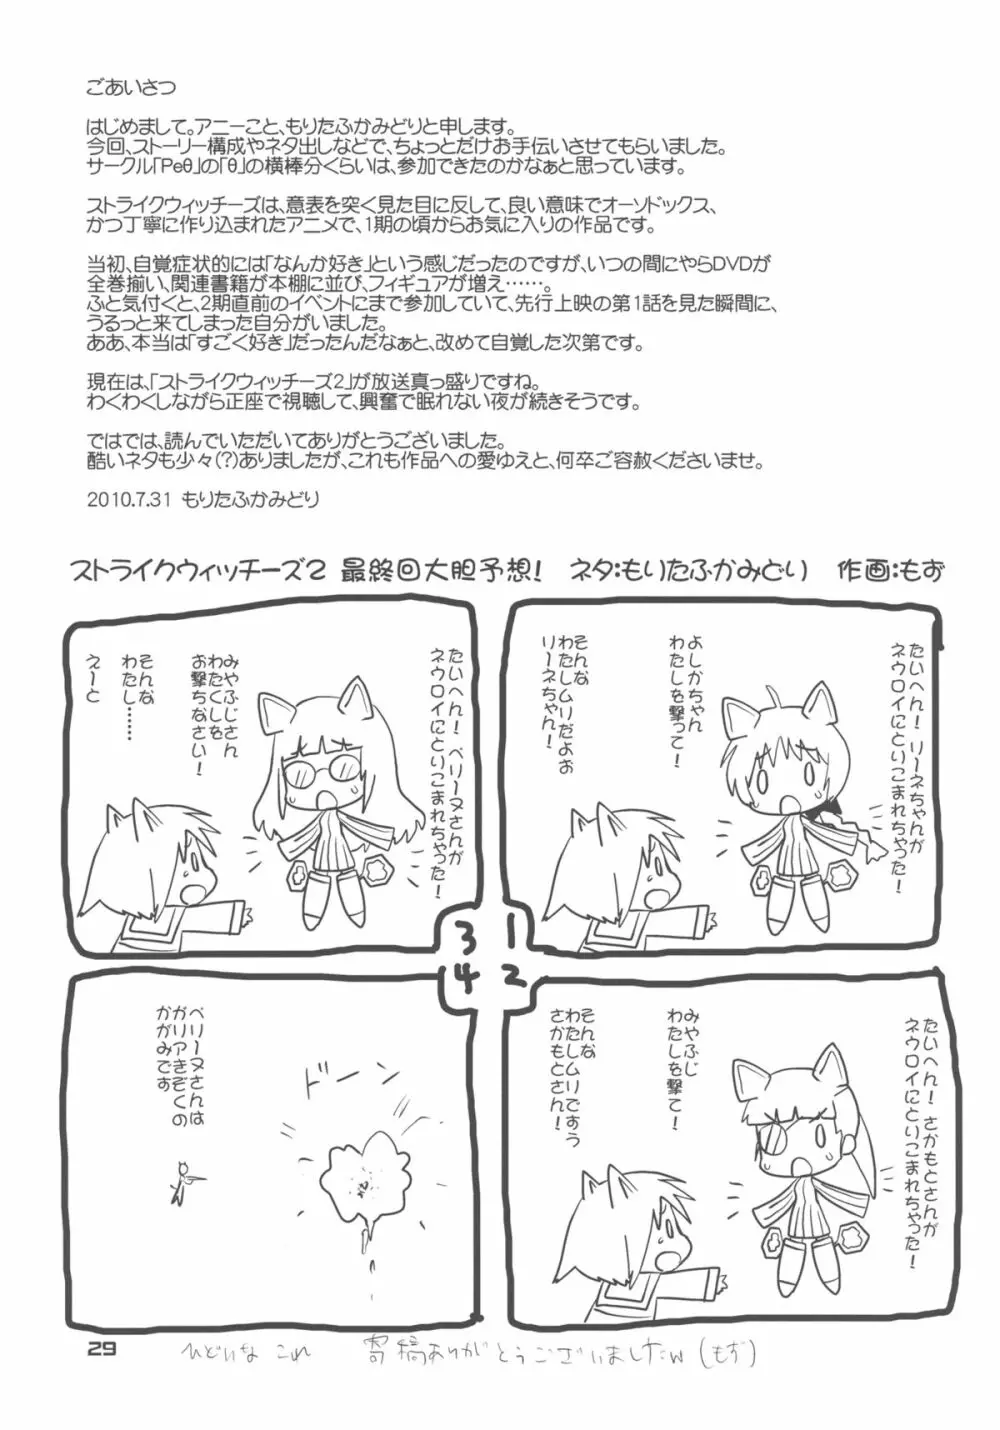 ごあいさつ
はじめまして。アニーこと、もりたふかみどりと申します。
今回、ストーリー構成やネタ出しなどで、ちょっとだけお手伝いさせてもらいました。
サークル「Peθ」の「θ」の横棒分くらいは、参加できたのかなぁと思っています。
ストライクウィッチーズは、意表を突く見た目に反して、良い意味でオーソドックス、
かつ丁寧に作り込まれたアニメで、1期の頃からお気に入りの作品です。
当初、自覚症状的には「なんか好き」という感じだったのですが、いつの間にやらDVDが
全巻揃い、関連書籍が本棚に並び、フィギュアが増え……。
ふと気付くと、2期直前のイベントにまで参加していて、先行上映の第1話を見た瞬間に、
うるっと来てしまった自分がいました。
ああ、本当は「すごく好き」だったんだなぁと、改めて自覚した次第です。
現在は、「ストライクウィッチーズ2」が放送真っ盛りですね。
わくわくしながら正座で視聴して、興奮で眠れない夜が続きそうです。
ではでは、読んでいただいてありがとうございました。
酷いネタも少々(?)ありましたが、これも作品への愛ゆえと、何卒ご容赦くださいませ。
2010.7.31 もりたふかみどり
ストライクウィッチーズ2 最終回大胆予想! ネタ:もりたふかみどり 作画:もず
たいへん! リーネちゃんが
ネウロイにとりこまれちゃった!
よしかちゃん
わたしを撃って!
そんな
わたしムリだよぉ
リーネちゃん!
1
たいへん! さかもとさんが
ネウロイにとりこまれちゃった!
みやふじ
わたしを撃て!
そんな
わたしムリですぅ
さかもとさん!
2
たいへん! ペリーヌさんが
ネウロイにとりこまれちゃった!
みやふじさん
わたくしを
お撃ちなさい!
そんな
わたし……
えーと
3
4
ドーン
ペリーヌさんは
ガリアきぞくの
かがみです
29
ひどいな これ 寄稿ありがとうございましたw (もず)